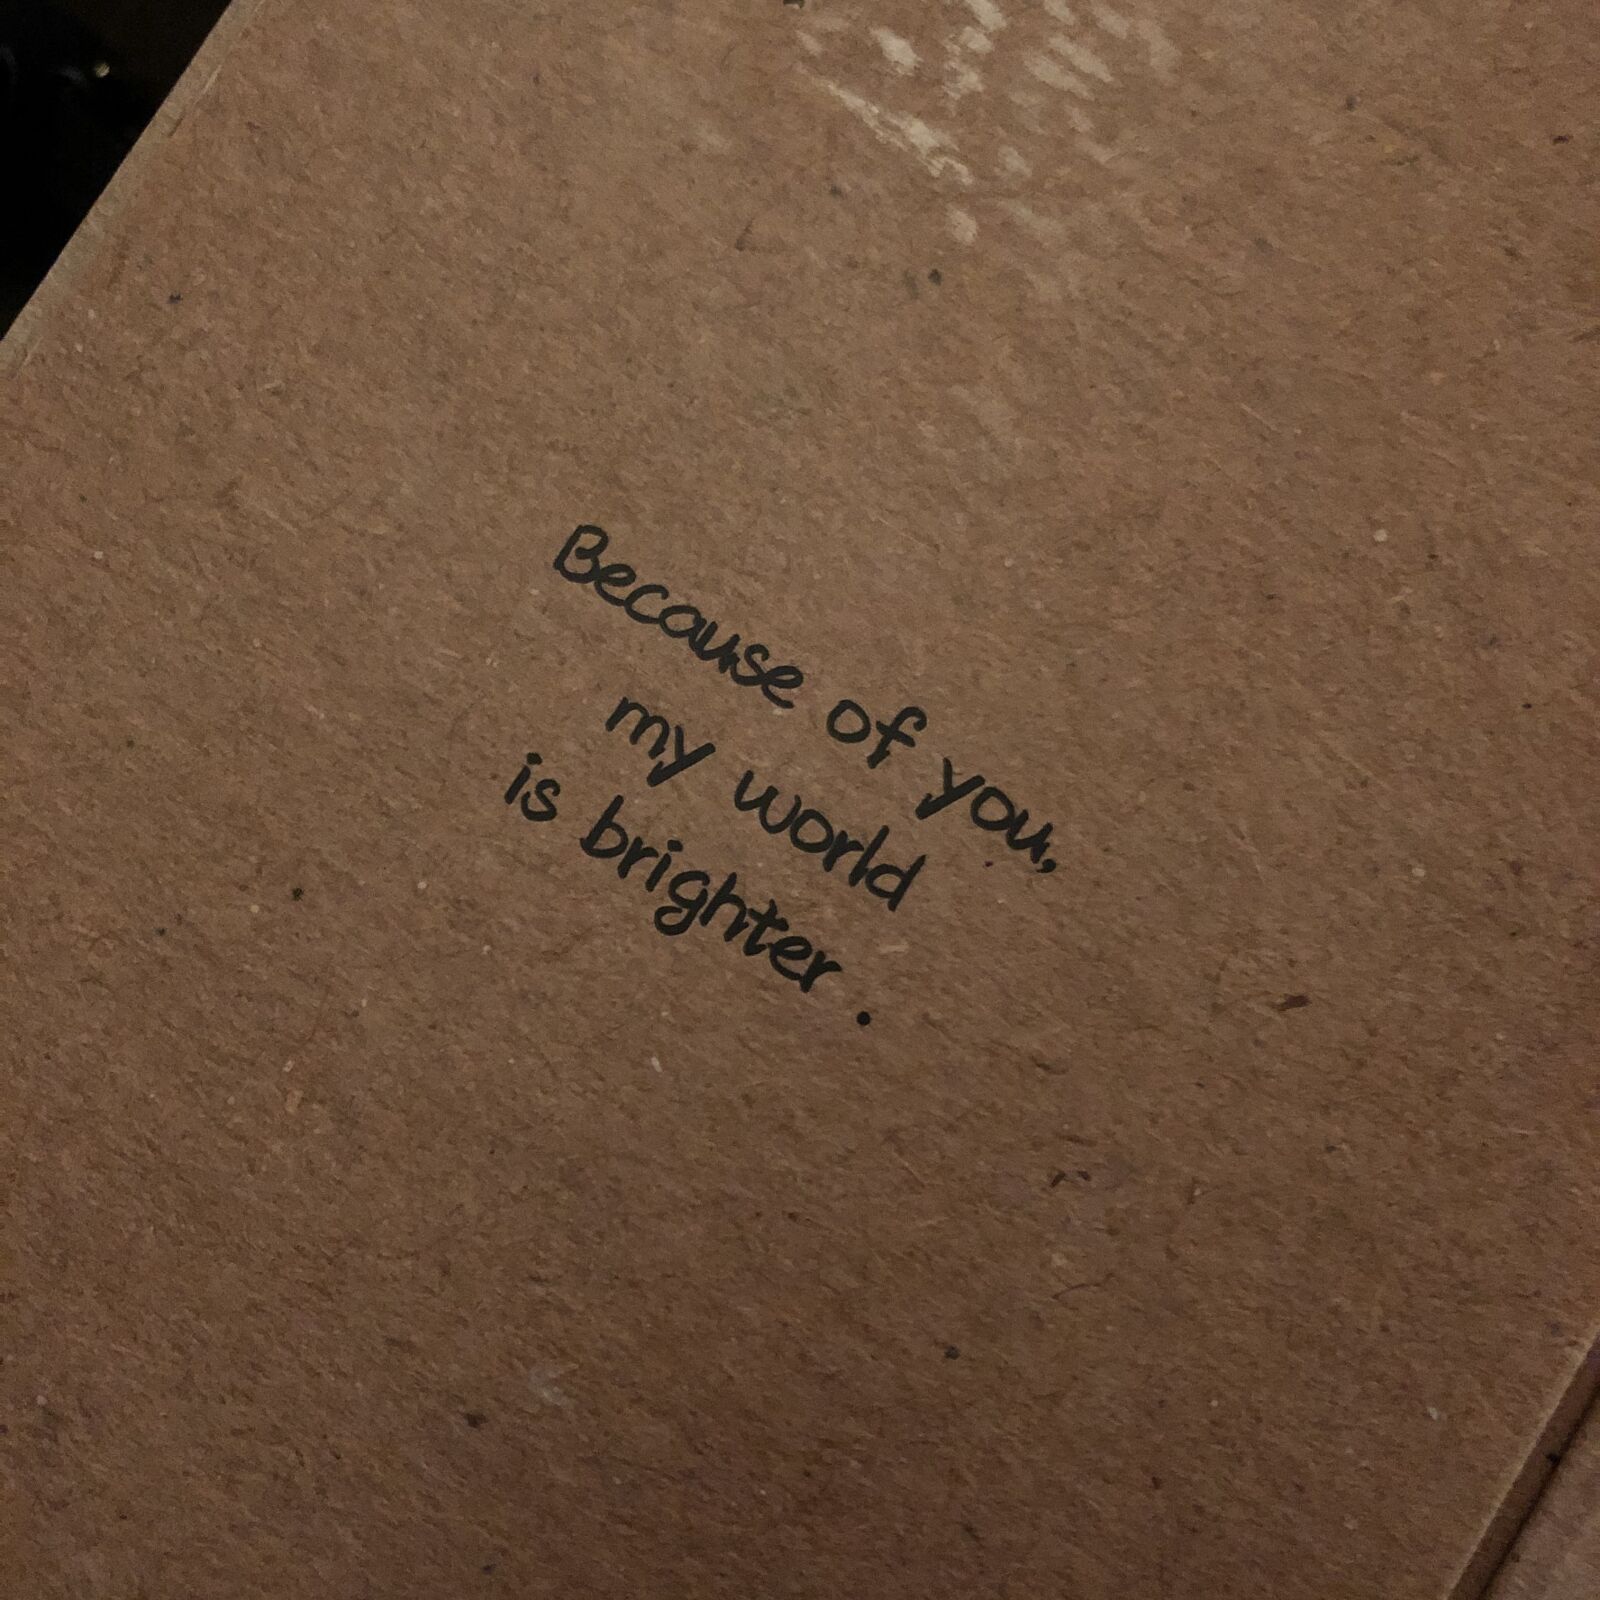 Because of you,
my world
is brighter .